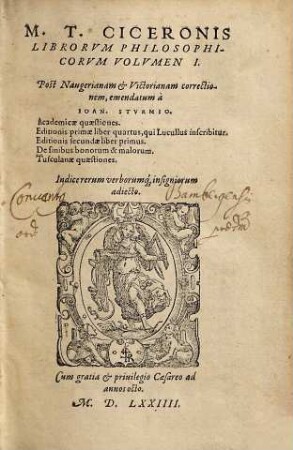 M. T. CICERONIS
LIBRORVM PHILOSOPHI-
CORVM VOLVMEN I.
Post Naugerianam & Victorianam correctio-
nem, emendatum à
IOAN. STVRMIO.
Academicæ quæstiones.
Editionis primæ liber quartus, qui Lucullus inscribitur.
Editionis secundæ liber primus.
De finibus bonorum & malorum.
Tusculanæ quæstiones.
Indice rerum verborumq; insigniorum
adiecto.
Conventus
Bambergensis
ord
Cum gratia & priuilegio Cæsareo ad
annos octo.
M. D. LXXIIII.